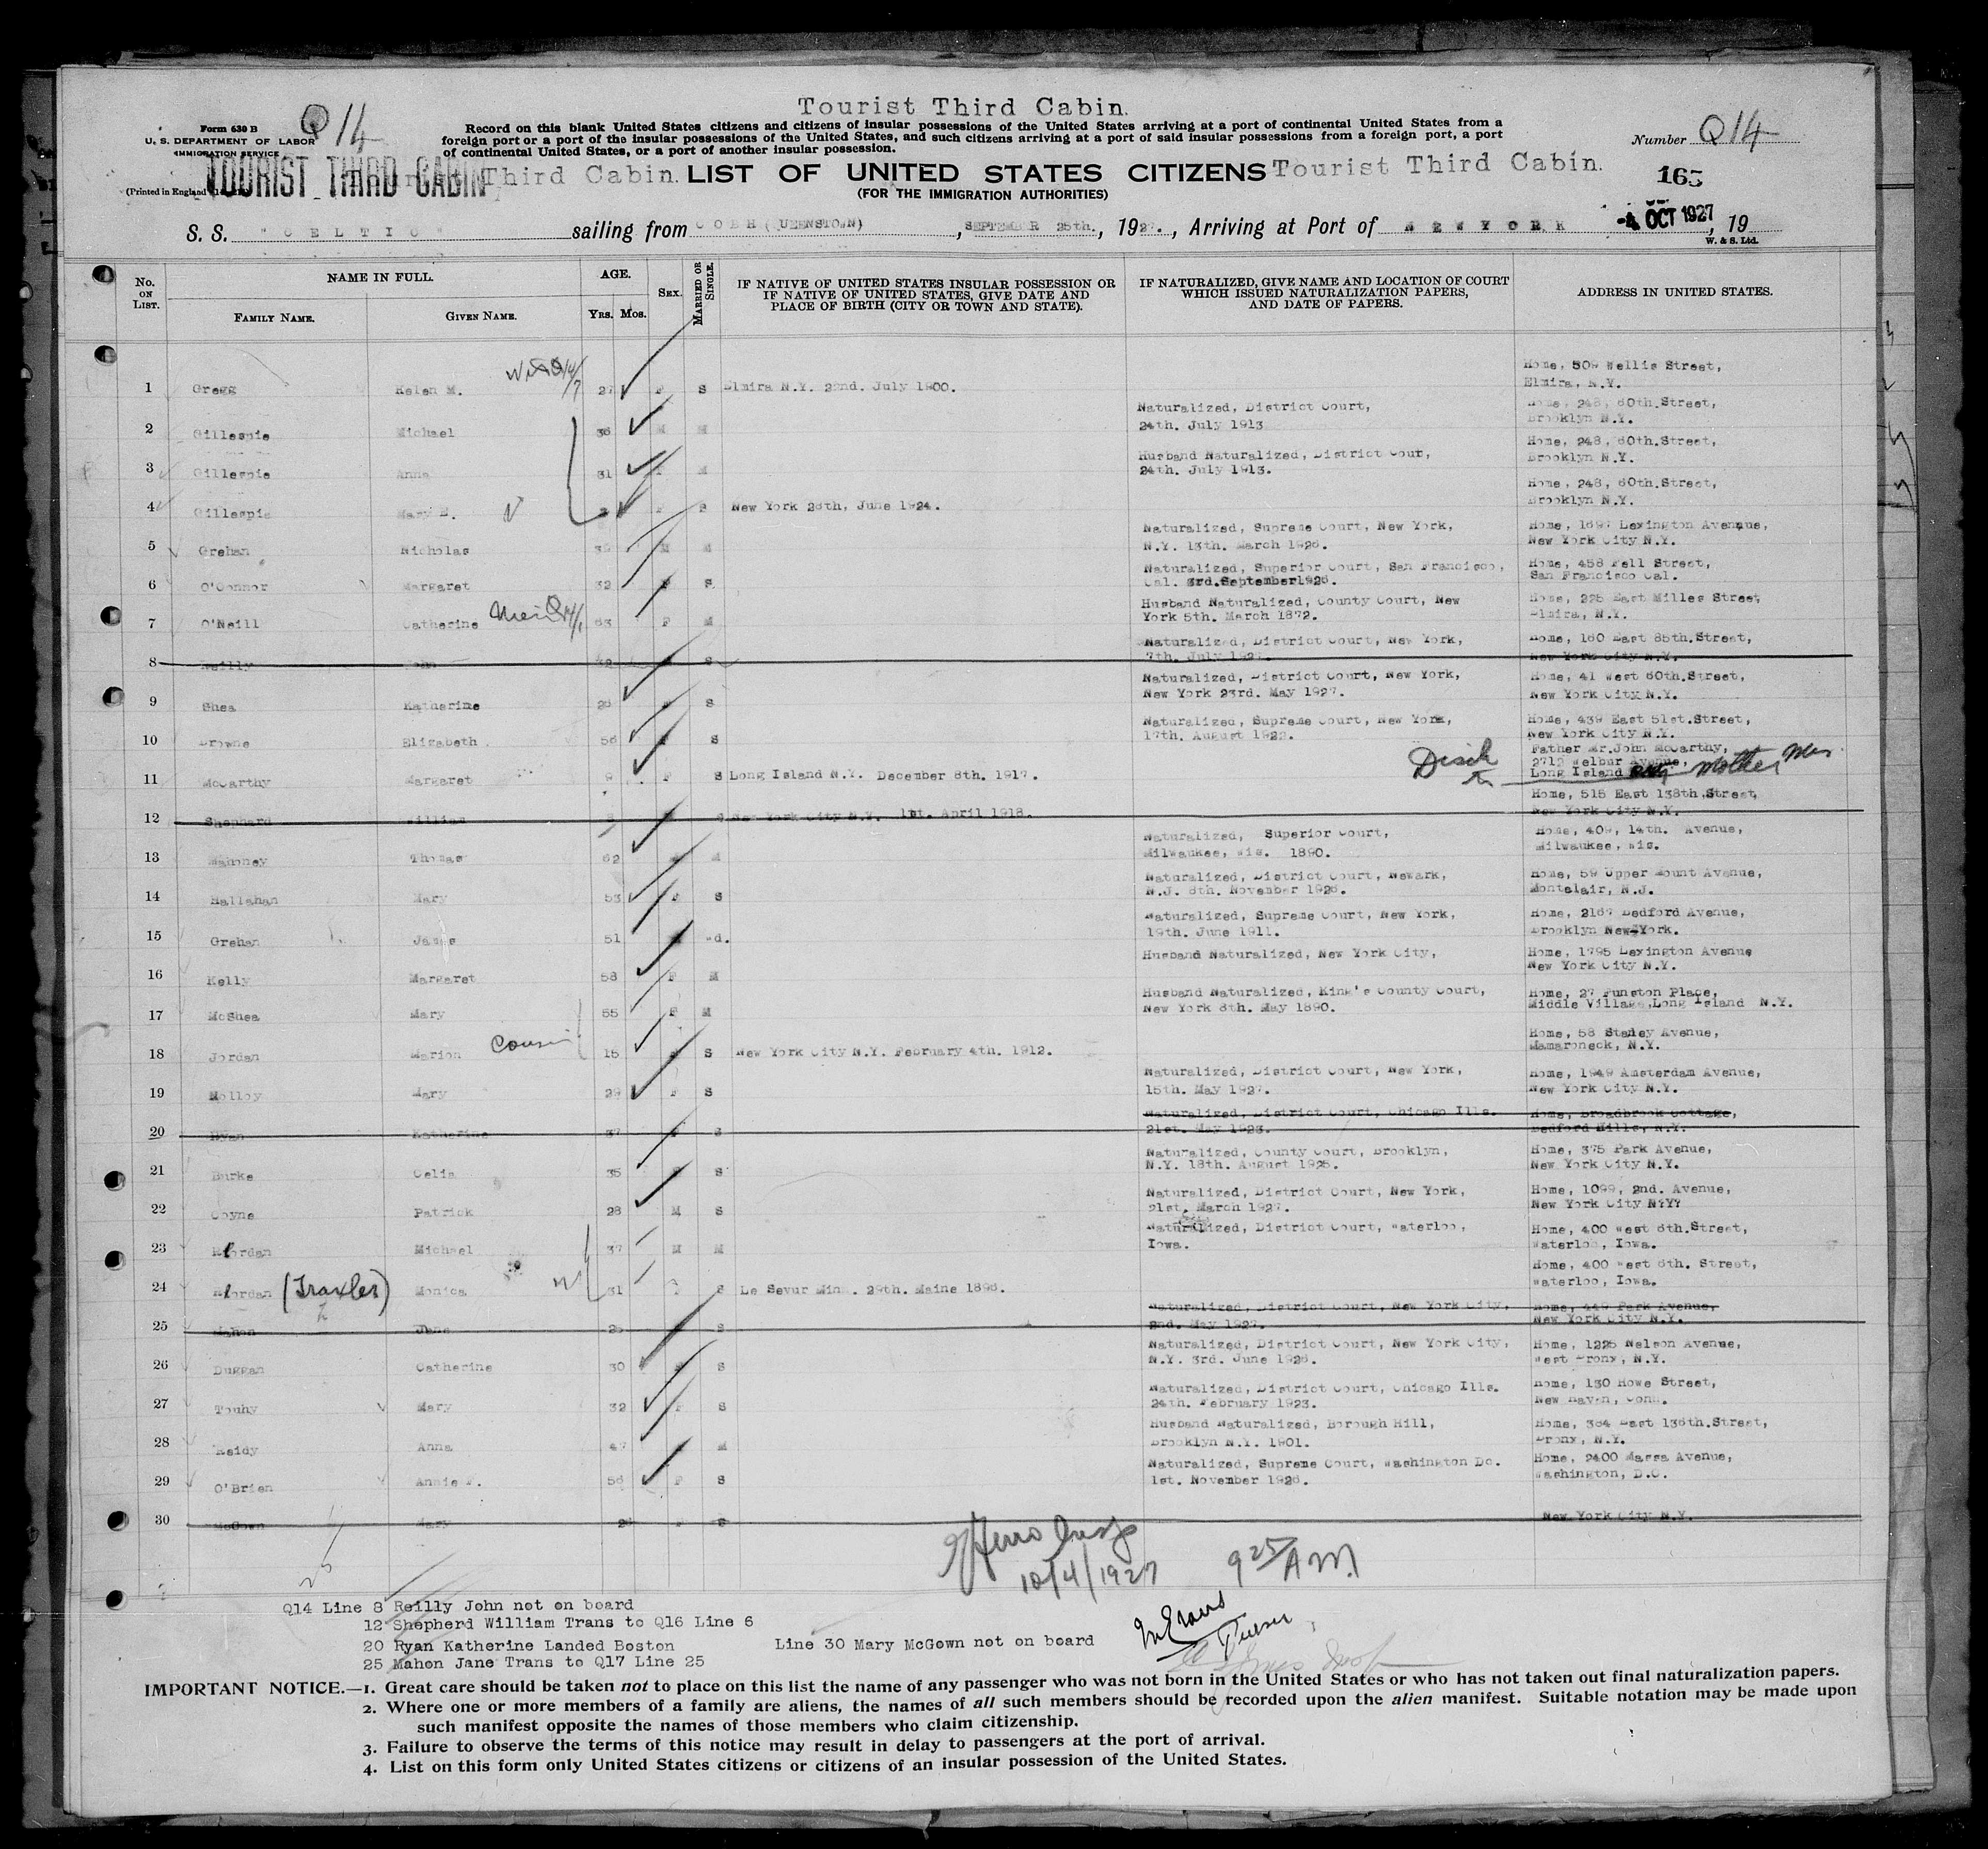 Tourist Third Cabin.
Form 630 B
U. S. DEPARTMENT OF LABOR
IMMIGRATION SERVICE
(Printed in England
Q 14
Record on this blank United States citizens and citizens of insular possessions of the United States arriving at a port of continental United States from a
foreign port or a port of the insular possessions of the United States, and such citizens arriving at a port of said insular possessions from a foreign port, a port
of continental United States, or a port of another insular possession.
Number Q14
TOURIST THIRD CABIN Third Cabin. LIST OF UNITED STATES CITIZENS Tourist Third Cabin.
(FOR THE IMMIGRATION AUTHORITIES)
165
S. S. "CELTIC" sailing from COBH (QUEENSTOWN), SEPTEMBER 25th., 1927., Arriving at Port of NEW YORK -4 OCT 1927, 19
W. & S. Ltd.
No. ON LIST. NAME IN FULL. FAMILY NAME. GIVEN NAME. AGE. YRS. MOS. SEX. MARRIED OR SINGLE. IF NATIVE OF UNITED STATES INSULAR POSSESSION OR IF NATIVE OF UNITED STATES, GIVE DATE AND PLACE OF BIRTH (CITY OR TOWN AND STATE). IF NATURALIZED, GIVE NAME AND LOCATION OF COURT WHICH ISSUED NATURALIZATION PAPERS, AND DATE OF PAPERS. ADDRESS IN UNITED STATES.
1 Gregg Helen M. 27 F S Elmira N.Y. 22nd. July 1900. Home, 509 Wellis Street, Elmira, N.Y.
2 Gillespie Michael 36 M M Naturalized, District Court, 24th. July 1913 Home, 248, 60th.Street, Brooklyn N.Y.
3 Gillespie Anna 31 F M Husband Naturalized, District Cour, 24th. July 1913. Home, 248, 60th.Street, Brooklyn N.Y.
4 Gillespie Mary E. F S New York 28th, June 1924. Home, 248, 60th.Street, Brooklyn N.Y.
5 Grehan Nicholas M M Naturalized, Supreme Court, New York, N.Y. 13th. March 1926. Home, 1697 Lexington Avennue, New York City N.Y.
6 O'Connor Margaret 32 F S Naturalized, Superior Court, San Francisco, Cal. 3rd.September1926. Home, 458 Fell Street, San Francisco Cal.
7 O'Neill Catherine 63 F M Husband Naturalized, County Court, New York 5th. March 1872. Home, 225 East Milles Street, Elmira, N.Y.
8 Reilly John 32 S Naturalized, District Court, New York, 7th. July 1927. Home, 160 East 85th.Street, New York City N.Y.
9 Shea Katherine 26 F S Naturalized, District Court, New York, New York 23rd. May 1927. Home, 41 West 60th.Street, New York City N.Y.
10 Browne Elizabeth 56 F S Naturalized, Supreme Court, New York, 17th. August 1922. Home, 439 East 51st.Street, New York City N.Y.
11 McCarthy Margaret 9 F S Long Island N.Y. December 8th. 1917. Father Mr.John McCarthy, 2712 Welbur Avenue, Long Island Mother
12 Shephard William S New York City N.Y. 1st. April 1918. Home, 515 East 138th.Street, New York City N.Y.
13 Mahoney Thomas 62 M M Naturalized, Superior Court, Milwaukee, Wis. 1890. Home, 409, 14th. Avenue, Milwaukee, Wis.
14 Hallahan Mary 53 F S Naturalized, District Court, Newark, N.J. 8th. November 1926. Home, 59 Upper Mount Avenue, Montclair, N.J.
15 Grehan James 51 M Wd. Naturalized, Supreme Court, New York, 19th. June 1911. Home, 2167 Bedford Avenue, Brooklyn New York.
16 Kelly Margaret 58 F M Husband Naturalized, New York City, Home, 1795 Lexington Avenue New York City N.Y.
17 McShea Mary 55 F M Husband Naturalized, King's County Court, New York 8th. May 1890. Home, 27 Funston Place, Middle Village,Long Island N.Y.
18 Jordan Marion Cousin 15 F S New York City N.Y. February 4th. 1912. Home, 58 Stanley Avenue, Mamaroneck, N.Y.
19 Molloy Mary 29 F S Naturalized, District Court, New York, 15th. May 1927. Home, 1949 Amsterdam Avenue, New York City N.Y.
20 Ryan Katherine 37 F S Naturalized, District Court, Chicago Ills. 21st. May 1923. Home, Broadbrook Cottage, Bedford Hills, N.Y.
21 Burke Celia 35 F S Naturalized, County Court, Brooklyn, N.Y. 18th. August 1925. Home, 375 Park Avenue, New York City N.Y.
22 Coyne Patrick 28 M S Naturalized, District Court, New York, 21st. March 1927. Home, 1099, 2nd. Avenue, New York City N?Y?
23 Riordan Michael 37 M M Naturalized, District Court, Waterloo, Iowa. Home, 400 West 6th.Street, Waterloo, Iowa.
24 Riordan (Traxler) Monica 31 F S Le Sevur Minn. 29th. Maine 1896. Home, 400 West 6th. Street, Waterloo, Iowa.
25 Mahon Jane S Naturalized, District Court, New York City, 2nd. May 1927. Home, 449 Park Avenue, New York City N.Y.
26 Duggan Catherine 30 F S Naturalized, District Court, New York City, N.Y. 3rd. June 1926. Home, 1225 Nelson Avenue, West Bronx, N.Y.
27 Touhy Mary 32 F S Naturalized, District Court, Chicago Ills. 24th. February 1923. Home, 130 Howe Street, New Haven, Conn.
28 Reidy Anna 47 F M Husband Naturalized, Borough Hill, Brooklyn N.Y. 1901. Home, 364 East 136th.Street, Bronx, N.Y.
29 O'Brien Annie 56 F S Naturalized, Supreme Court, Washington Dc. 1st. November 1926. Home, 2400 Massa Avenue, Washington, D.C.
30 McGown Mary F S New York City N.Y.
10/4/1927 9 25 A M
Q14 Line 8 Reilly John not on board
12 Shepherd William Trans to Q16 Line 6
20 Ryan Katherine Landed Boston Line 30 Mary McGown not on board
25 Mahon Jane Trans to Q17 Line 25
IMPORTANT NOTICE.—1. Great care should be taken not to place on this list the name of any passenger who was not born in the United States or who has not taken out final naturalization papers.
2. Where one or more members of a family are aliens, the names of all such members should be recorded upon the alien manifest. Suitable notation may be made upon
such manifest opposite the names of those members who claim citizenship.
3. Failure to observe the terms of this notice may result in delay to passengers at the port of arrival.
4. List on this form only United States citizens or citizens of an insular possession of the United States.